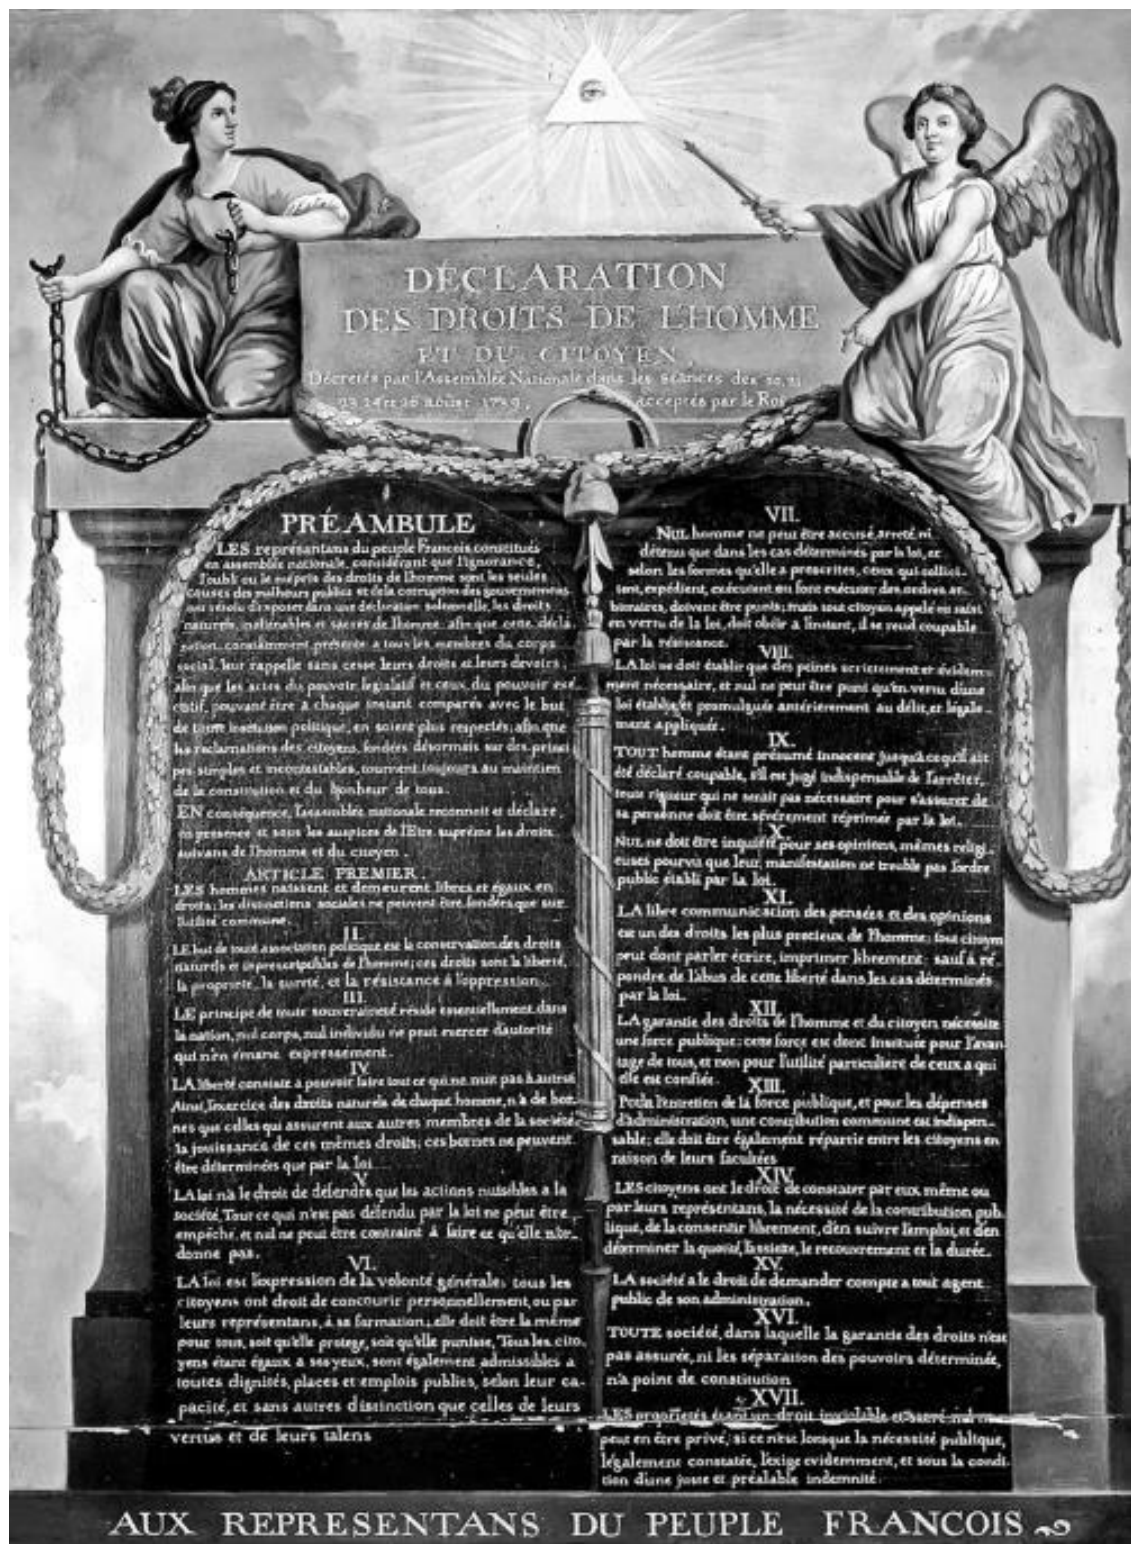 DÉCLARATION
DES DROITS DE L'HOMME
ET DU CITOYEN,
Décretés par l'Assemblée Nationale dans les séances des 20, 21
23 24 et 26 aoust 1789, acceptés par le Roi
PRÉAMBULE
LES représantans du peuple François constitués
en assemblée nationale, considérant que l'ignorance,
l'oubli ou le mépris des droits de l'homme sont les seules
causes des malheurs publics et de la corruption des gouvernemens
ont résolu d'exposer dans une déclaration solemnelle, les droits
naturels, inaliénables et sacrés de l'homme, afin que cette décla
ration, constamment présente a tous les membres du corps
social, leur rappelle sans cesse leurs droits et leurs devoirs,
afin que les actes du pouvoir législatif et ceux du pouvoir exé
cutif, pouvant être a chaque instant comparés avec le but
de toute institution politique, en soient plus respectés; afin que
les reclamations des citoyens, fondées désormais sur des princi
pes simples et incontestables, tournent toujours au maintien
de la constitution et du bonheur de tous.
EN conséquence, l'assemblée nationale reconnoit et déclare
en presence et sous les auspices de l'Etre suprême les droits
suivans de l'homme et du citoyen.
ARTICLE PREMIER.
LES hommes naissent et demeurent libres et égaux en
droits; les distinctions sociales ne peuvent être fondées que sur
l'utilité commune.
II.
LE but de toute association politique est la conservation des droits
naturels et imprescriptibles de l'homme; ces droits sont la liberté,
la propriété, la sureté, et la résistance à l'oppression.
III.
LE principe de toute souveraineté réside essentiellement dans
la nation, nul corps, nul individu ne peut exercer d'autorité
qui n'en émane expressement.
IV.
LA liberté consiste à pouvoir faire tout ce qui ne nuit pas à autrui
Ainsi, l'exercice des droits naturels de chaque homme, n'a de bor
nes que celles qui assurent aux autres membres de la société
la jouissance de ces mêmes droits; ces bornes ne peuvent
être déterminées que par la loi
V.
LA loi n'a le droit de défendre que les actions nuisibles à la
société. Tout ce qui n'est pas défendu par la loi ne peut être
empêché, et nul ne peut être contraint à faire ce qu'elle n'or-
donne pas.
VI.
LA loi est l'expression de la volonté générale; tous les
citoyens ont droit de concourir personnellement, ou par
leurs représentans, à sa formation; elle doit être la même
pour tous, soit qu'elle protege, soit qu'elle punisse. Tous les cito
yens étant égaux à ses yeux, sont également admissibles à
toutes dignités, places et emplois publics, selon leur ca-
pacité, et sans autres distinction que celles de leurs
vertus et de leurs talens
VII.
NUL homme ne peut être accusé, arreté ni
détenu que dans les cas déterminés par la loi, et
selon les formes qu'elle a prescrites, ceux qui sollici-
tent, expédient, exécutent ou font exécuter des ordres ar-
bitraires, doivent être punis; mais tout citoyen appelé ou saisi
en vertu de la loi, doit obéir à l'instant, il se rend coupable
par la résistance.
VIII.
LA loi ne doit établir que des peines strictement et évidem-
ment nécessaire, et nul ne peut être puni qu'en vertu d'une
loi établie, et promulguée antérierement au délit, et légale
ment appliquée.
IX.
TOUT homme étant présumé innocent jusqu'a ce qu'il ait
été déclaré coupable, s'il est jugé indispensable de l'arrêter,
toute rigueur qui ne serait pas nécessaire pour s'assurer de
sa personne doit être sévèrement réprimée par la loi.
X.
NUL ne doit être inquiété pour ses opinions, mêmes religi-
euses pourvu que leur manifestation ne trouble pas l'ordre
public établi par la loi.
XI.
LA libre communication des pensées et des opinions
est un des droits les plus precieux de l'homme; tout citoyen
peut donc parler écrire, imprimer librement: sauf à ré
pondre de l'abus de cette liberté dans les cas déterminés
par la loi.
XII.
LA garantie des droits de l'homme et du citoyen nécessite
une force publique; cette force est donc instituée pour l'avan
tage de tous, et non pour l'utilité particuliere de ceux a qui
elle est confiée.
XIII.
Pour l'entretien de la force publique, et pour les dépenses
d'administration, une contribution commune est indispen-
sable; elle doit être également répartie entre les citoyens en
raison de leurs facultées
XIV.
LES citoyens ont le droit de constater par eux même ou
par leurs représentans, la nécessité de la contribution pub-
lique, de la consentir librement, d'en suivre l'emploi, et d'en
déterminer la quotité, l'assiette, le recouvrement et la durée.
XV.
LA société a le droit de demander compte a tout agent
public de son administration.
XVI.
TOUTE société, dans laquelle la garantie des droits n'est
pas assurée, ni les séparation des pouvoirs déterminée,
n'a point de constitution
XVII.
LES proprietés étant un droit inviolable et sacré, nul ne
peut en être privé, si ce n'est lorsque la nécessité publique,
légalement constatée, l'exige evidemment, et sous la condi
tion d'une juste et préalable indemnité.
AUX REPRESENTANS DU PEUPLE FRANCOIS